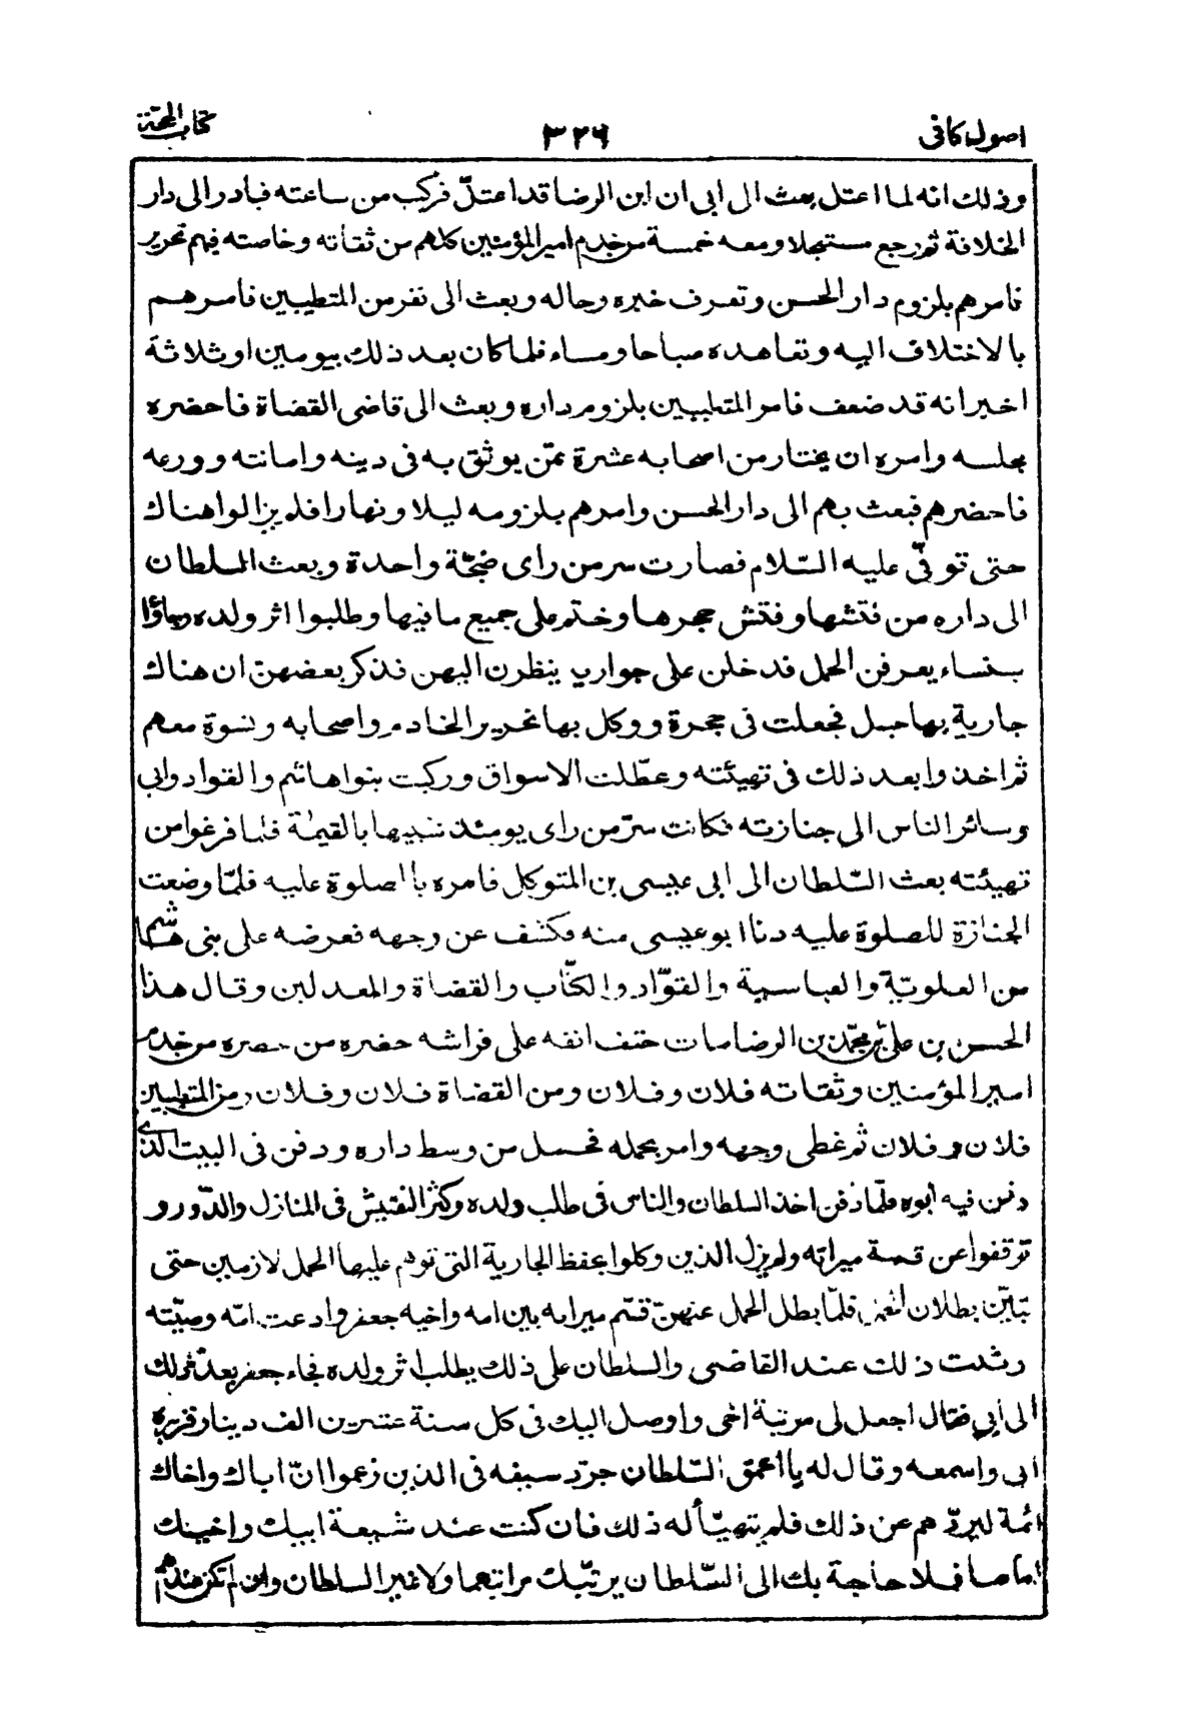 اصول كافى ٣٢٦ كتاب الحجة
وذلك انه لما اعتل بعث الى ابى ان ابن الرضا قد اعتلّ فركب من ساعته فبادر الى دار
الخلافة ثم رجع مستعجلا ومعه خمسة من خدم امير المؤمنين كلهم من ثقاته وخاصته فيهم نحرير
فامرهم بلزوم دار الحسن وتعرف خبره وحاله وبعث الى نفر من المتطببين فامرهم
بالاختلاف اليه وتعاهده صباحا ومساء فلما كان بعد ذلك بيومين او ثلاثة
اخبر انه قد ضعف فامر المتطببين بلزوم داره وبعث الى قاضى القضاة فاحضره
مجلسه وامره ان يختار من اصحابه عشرة ممّن يوثق به فى دينه وامانته وورعه
فاحضرهم فبعث بهم الى دار الحسن وامرهم بلزومه ليلا ونهارا فلم يزالوا هناك
حتى توفّى عليه السّلام فصارت سر من راى ضجّة واحدة وبعث السلطان
الى داره من فتشها وفتش حجرها وختم على جميع ما فيها وطلبوا اثر ولده وجاؤا
بنساء يعرفن الحمل فدخلن على جواريه ينظرن اليهن فذكر بعضهن ان هناك
جارية بها حبل فجعلت فى حجرة ووكل بها نحرير الخادم واصحابه ونسوة معهم
ثم اخذوا بعد ذلك فى تهيئته وعطّلت الاسواق وركبت بنو هاشم والقواد وابى
وسائر الناس الى جنازته فكانت سرّ من راى يومئذ شبيها بالقيمة فلما فرغوا من
تهيئته بعث السّلطان الى ابى عيسى بن المتوكل فامره بالصلوة عليه فلمّا وضعت
الجنازة للصلوة عليه دنا ابو عيسى منه فكشف عن وجهه فعرضه على بنى هاشم
من العلويّة والعباسية والقوّاد والكتّاب والقضاة والمعدلين وقال هذا
الحسن بن علىّ بن محمّد بن الرضا مات حتف انفه على فراشه حضره من حضره من خدم
امير المؤمنين وثقاته فلان وفلان ومن القضاة فلان وفلان ومن المتطببين
فلان وفلان ثم غطى وجهه وامر بحمله فحمل من وسط داره ودفن فى البيت الذى
دفن فيه ابوه فلمّا دفن اخذ السلطان والناس فى طلب ولده وكثر التفتيش فى المنازل والدّور و
توقفوا عن قسمة ميراثه ولم يزل الذين وكلوا بحفظ الجارية التى توهم عليها الحمل لازمين حتى
تبيّن بطلان الحمل فلمّا بطل الحمل عنهنّ قسّم ميراثه بين امه واخيه جعفر وادعت امّه وصيّته
وثبت ذلك عند القاضى والسلطان على ذلك يطلب اثر ولده فجاء جعفر بعد ذلك
الى ابى فقال اجعل لى مرتبة اخى واوصل اليك فى كل سنة عشرين الف دينار فزبره
ابى واسمعه وقال له يا احمق السّلطان جرّد سيفه فى الذين زعموا انّ اباك واخاك
ائمة ليردّهم عن ذلك فلم يتهيّأ له ذلك فان كنت عند شيعة ابيك واخيك
اماما فلا حاجة بك الى السّلطان يرتّبك مراتبهما ولا غير السلطان وان لم تكن عندهم